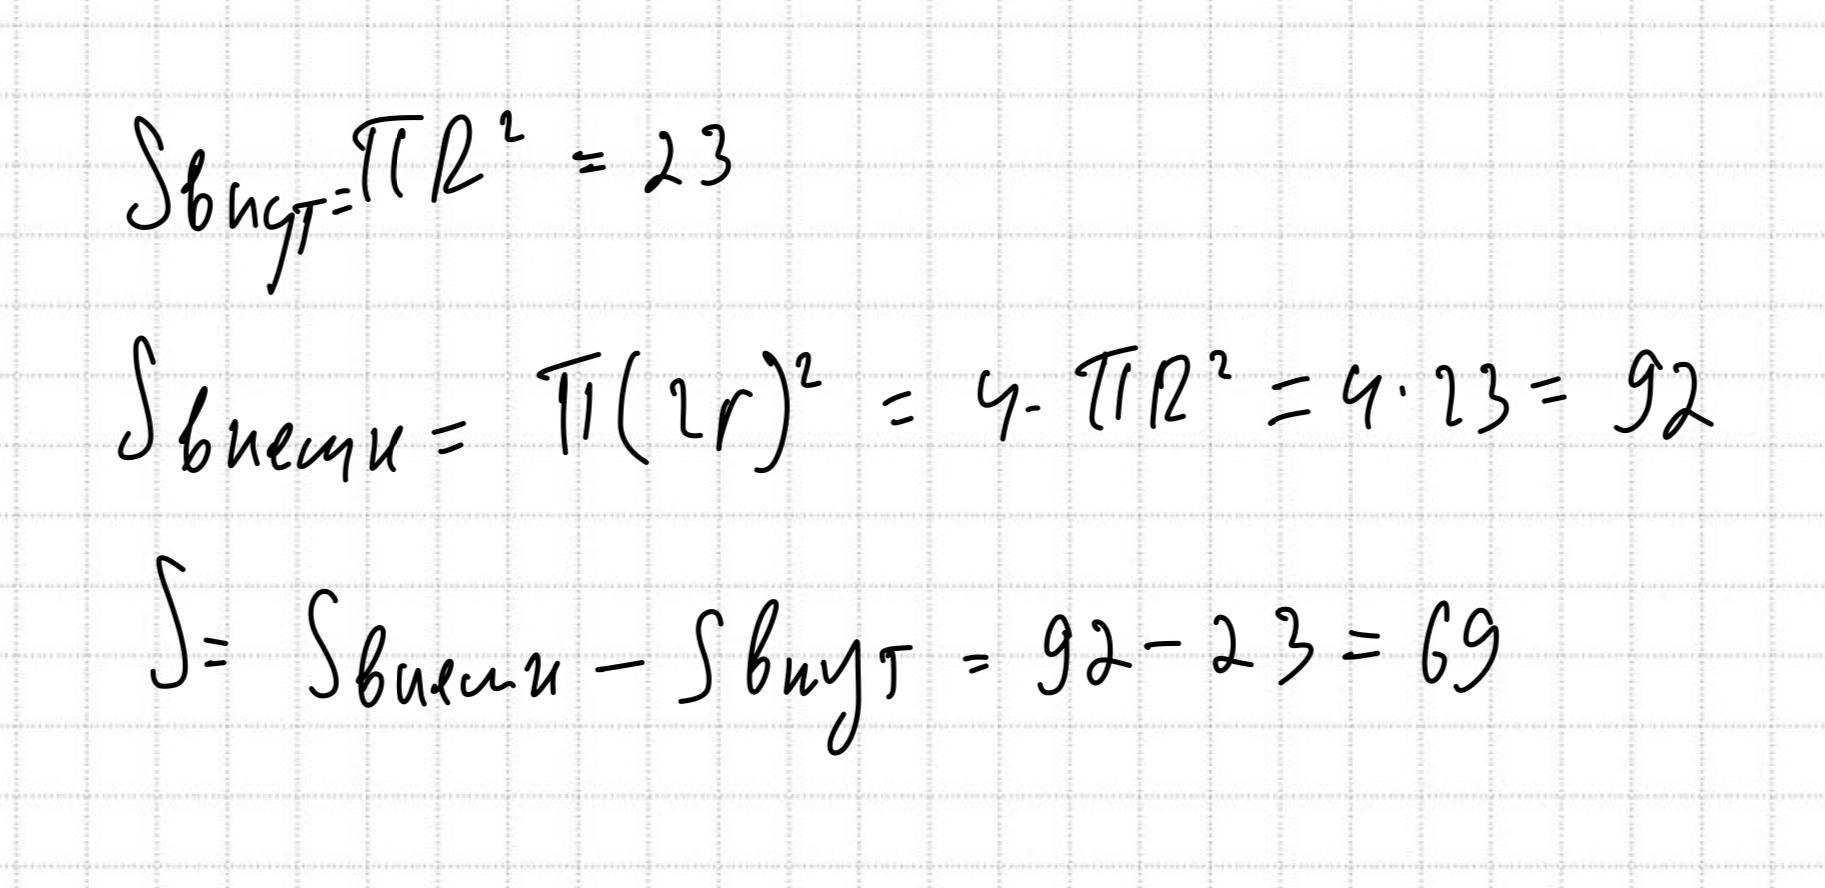 Sвнут=πR² = 23
Sвнешн = π(2r)² = 4·πR² = 4·23 = 92
S= Sвнешн – Sвнут = 92 – 23 = 69